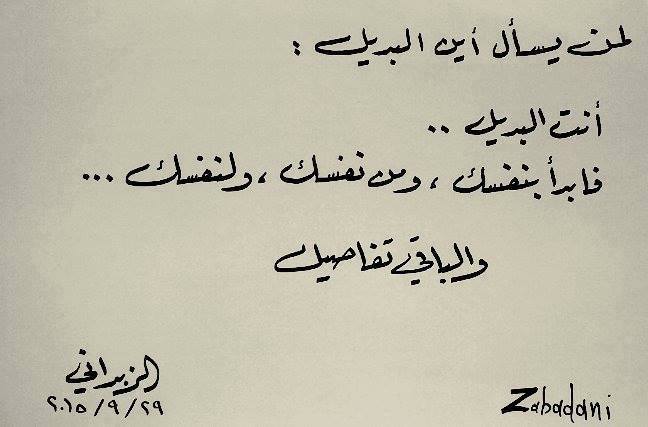 لمن يسأل أين البديل :
أنت البديل ..
فابدأ بنفسك ، ومن نفسك ، ولنفسك ...
والباقي تفاصيل
الزبداني
٢٠١٥/٩/٢٩
Zabadani